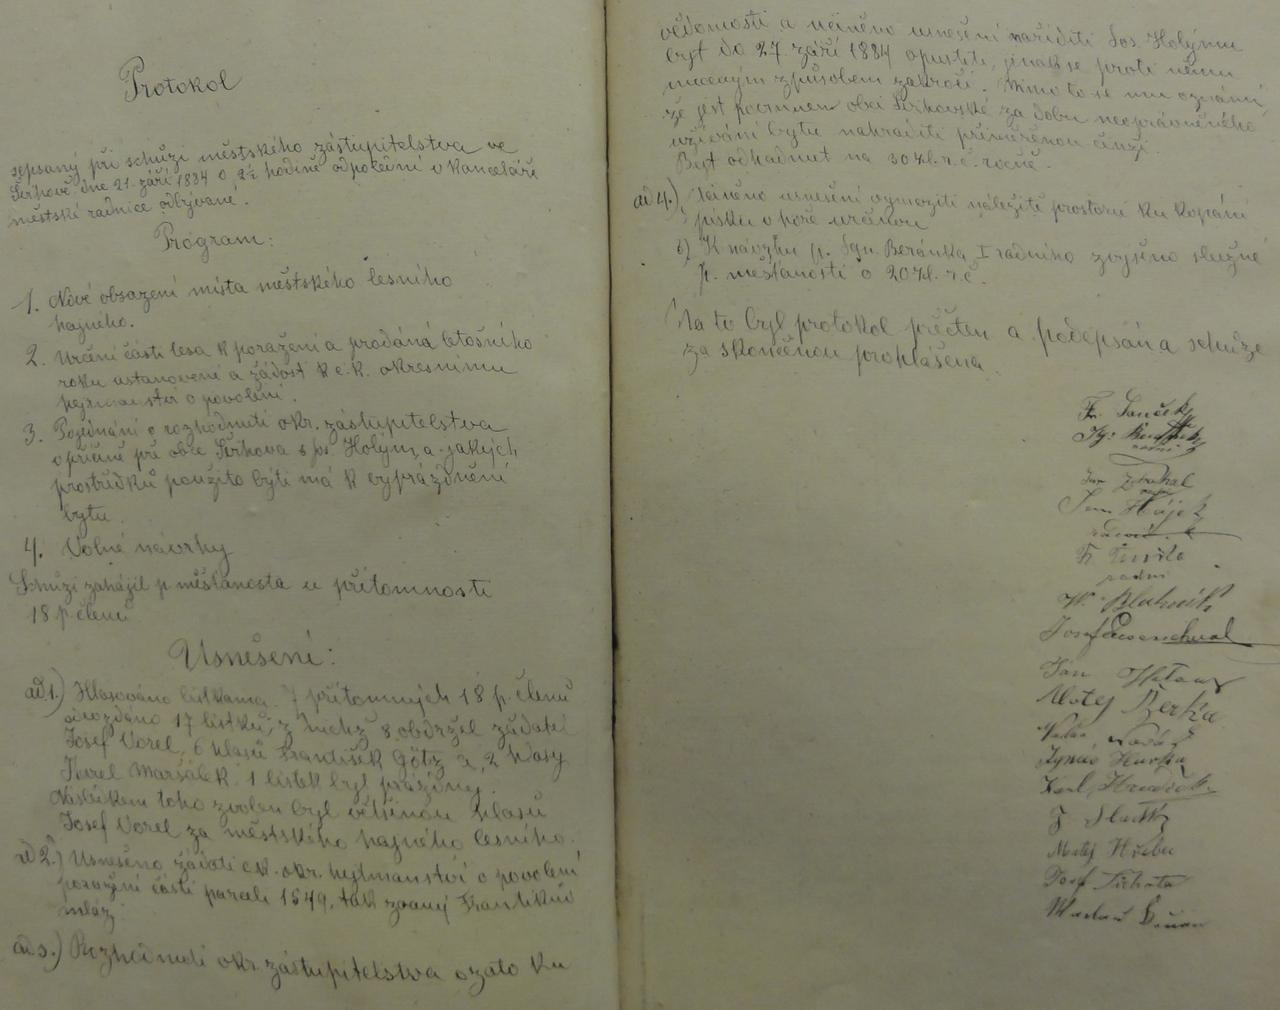 Protokol
sepsaný při schůzi městského zástupitelstva ve
dne 21. září 1884 o 2½ hodině odpolední v kanceláři
městské radnice odbývané.
Program:
1. Nové obsazení místa městského lesního
hajného.
2. Určení části lesa k poražení a prodání letošního
roku ustanovení a žádost k c. k. okresnímu
hejtmanství o povolení.
3. Pojednání o rozhodnutí okr. zástupitelstva
v při obce s Jos. Holým, a jakých
prostředků použito býti má k vyprázdnění
bytu.
4. Volné návrhy
Schůzi zahájil p. měšťanosta u přítomnosti
18 p. členů
Usnešení:
ad 1.) Hlasováno lístkama. Z přítomných 18 p. členů
odevzdáno 17 lístků, z nichž 8 obdržel žadatel
Josef Vorel, 6 hlasů František Götz a, 2 hlasy
Karel Maršálek. 1 lístek byl prázdný.
Následkem toho zvolen byl většinou hlasů
Josef Vorel za městského hajného lesního.
ad 2.) Usnešeno žádati c. k. okr. hejtmanství o povolení
poražení části parceli 1549, tak zvaný Frantíkův
mláz.
ad 3.) Rozhodnutí okr. zástupitelstva vzato ku
vědomosti a učiněno usnešení naříditi Jos. Holýmu
byt do 27. září 1884 opustiti, jinak se proti němu
způsobem zakročí. Mimo to se mu oznámí
že jest povinnen obci za dobu neoprávněného
užívání bytu nahraditi přiměřenou činži.
Byt odhadnut na 30 zl. r. č. ročně.
ad 4.) Učiněno usnešení vymeziti náležité prostoru ku kopání
písku v hoře
b) K návrhu p. Ign. Beránka I radního zvýšeno služné
p. měšťanosti o 20 zl. r. č.
Na to byl protokol přečten a podepsán a schůze
za skončenou prohlášena.
Fr.
Ig.
radní
Jan Zdrahal
Jan Hájek
radní
Fr.
radní
Josef
Jan
Matěj
Ignác Hurka
Karl
J. Sladký
Matěj
Josef Tichota
Václav